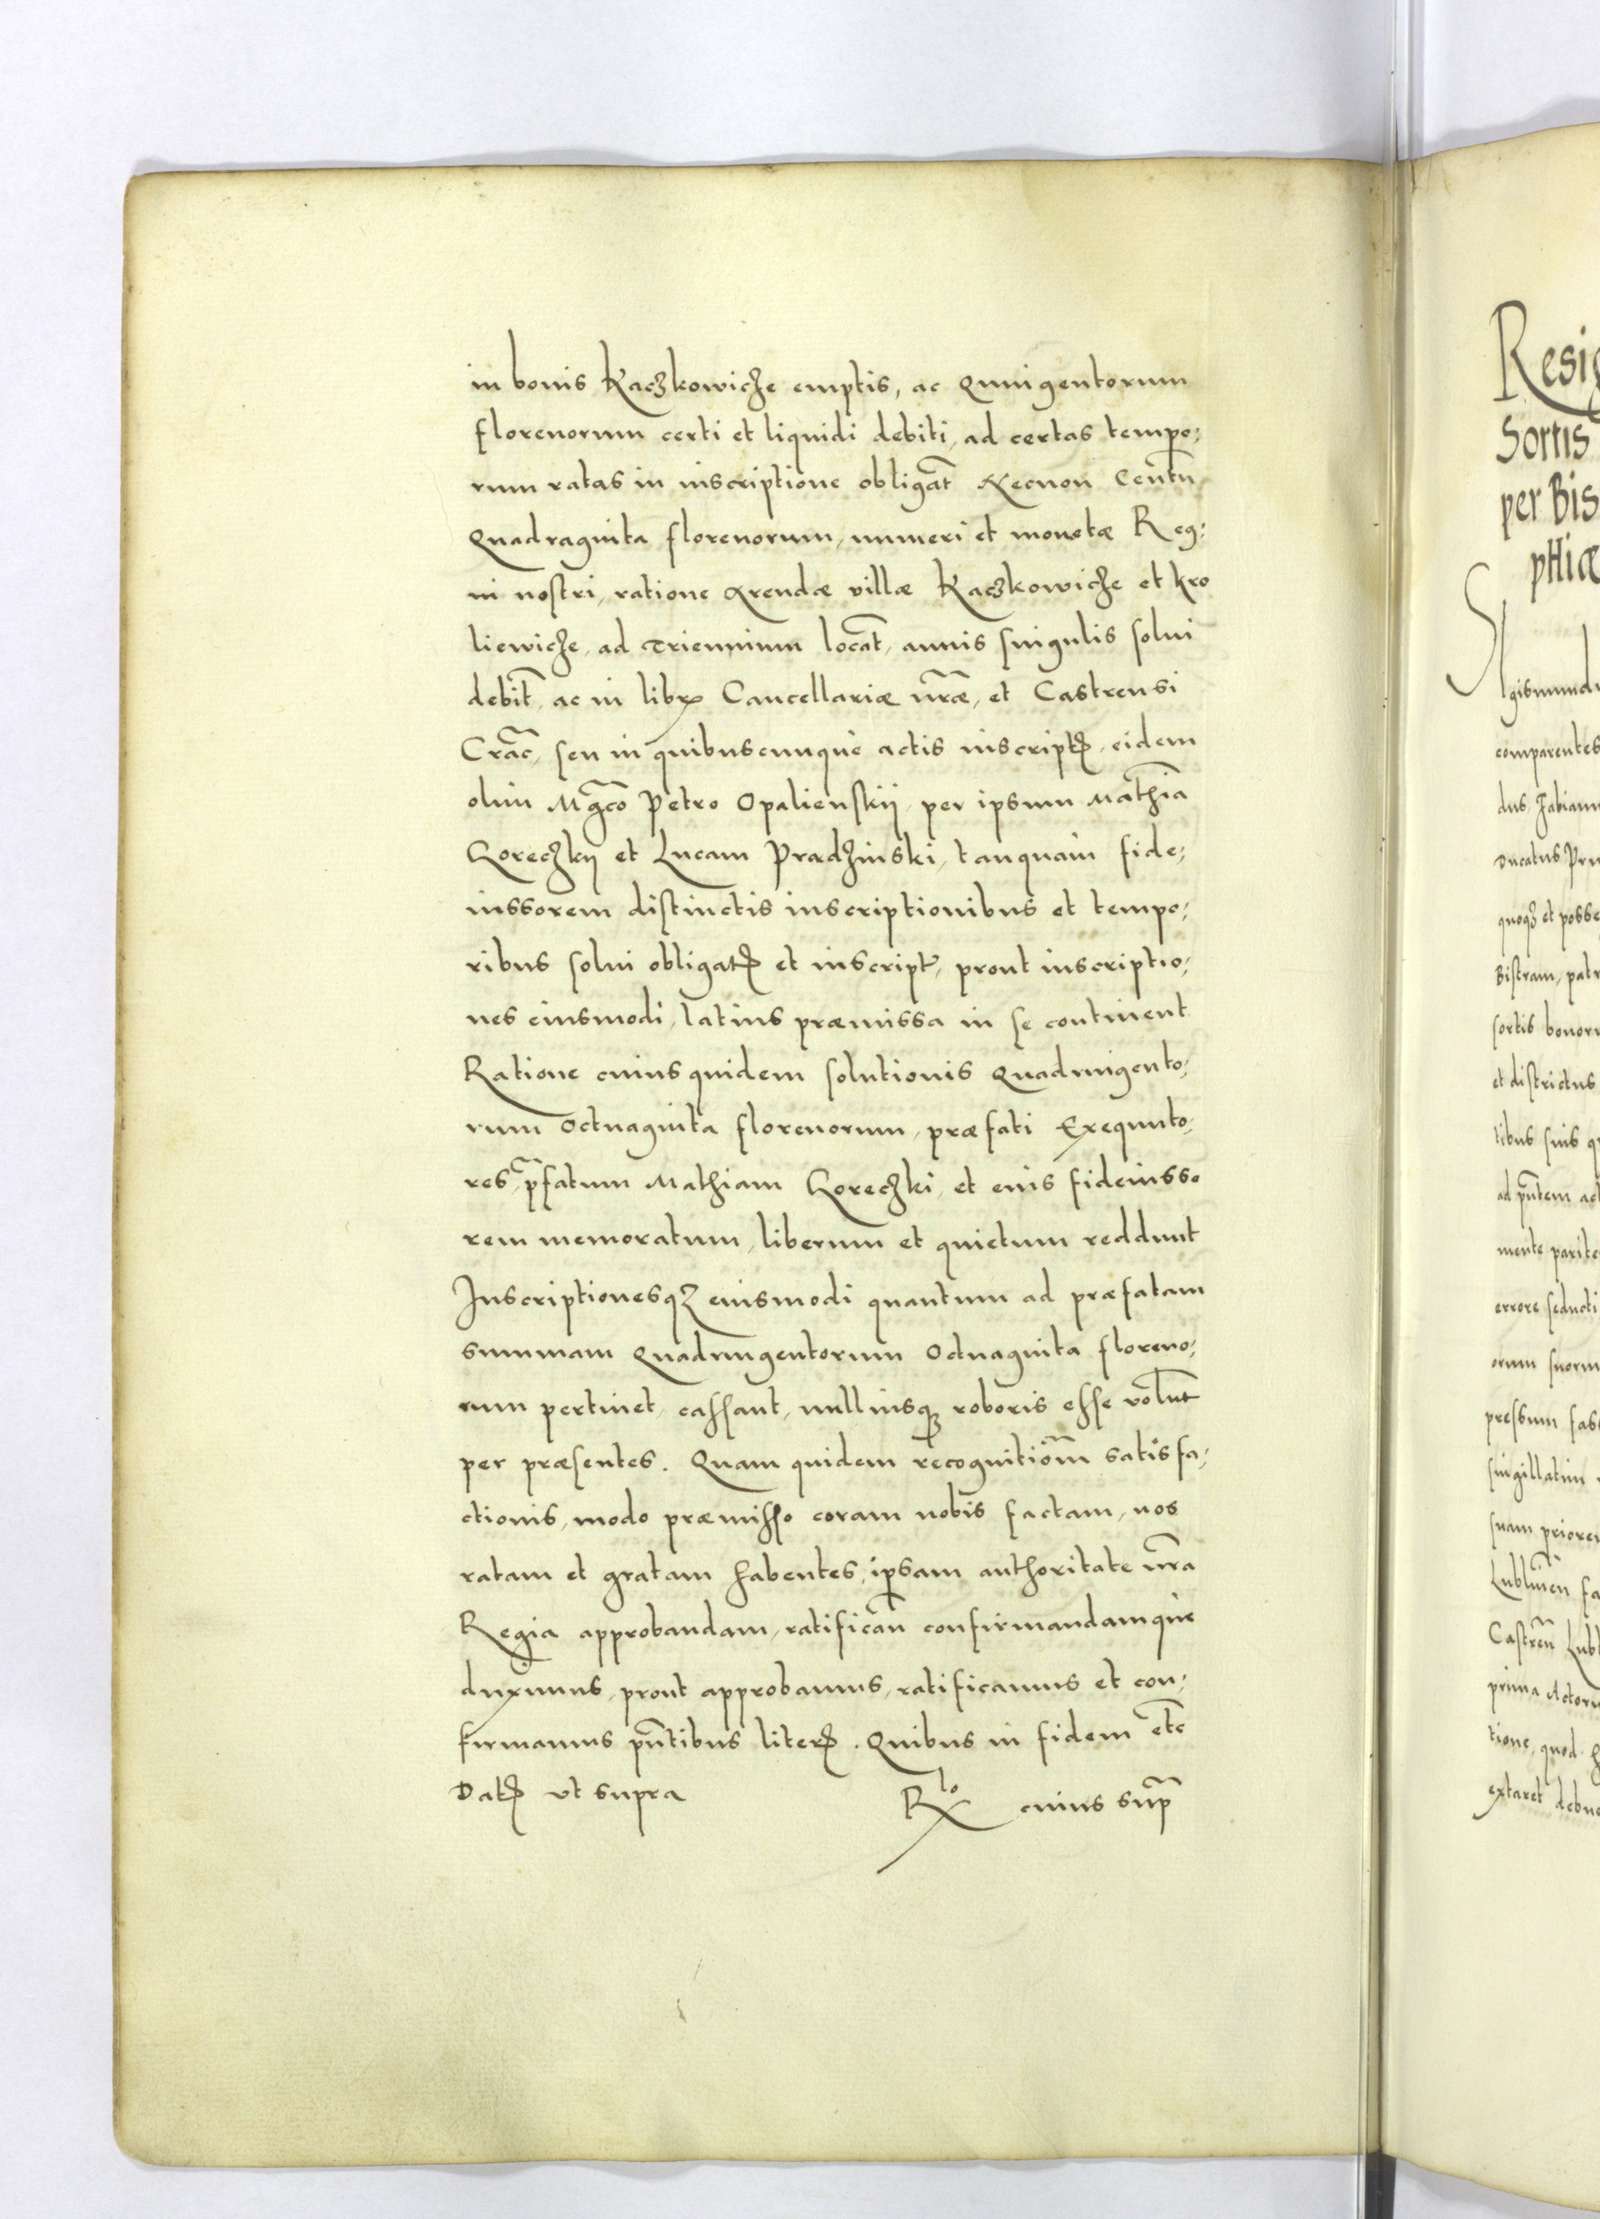 in bonis Kaczkowicze emptis, ac Quingentorum
florenorum certi et liquidi debiti, ad certas tempo:
rum ratas in inscriptione obligat̃ Necnon Centũ
Quadraginta florenorum, numeri et monetæ Reg:
ni nostri, ratione Arendæ villæ Kaczkowicze et Kro
liewicze, ad Triennium locat̃, annis singulis solui
debit̃, ac in libr̃ Cancellariæ nr̃æ, et Castrensi
Crac̃, seu in quibuscunque actis inscript̃, eidem
olim Mag̃co Petro Opalienskij, per ipsum Mathĩa
Goreczkij et Lucam Prądzinski, tanquam fide:
iussorem distinctis inscriptionibus et tempo:
ribus solui obligat̃ et inscript̃, prout inscriptio:
nes eiusmodi, latius præmissa in se continent
Ratione cuius quidem solutionis Quadringento:
rum Octuaginta florenorum, præfati Exequuto:
res, p̃fatum Mathiam Goreczki, et eius fideiusso
rem memoratum, liberum et quietum reddunt
Inscriptionesqȝ eiusmodi quantum ad præfatam
summam Quadringentorum Octuaginta floreno:
rum pertinet, cassant, nulliusqȝ roboris esse volũt
per præsentes. Quam quidem recognitiom̃ satisfa:
ctionis, modo præmisso coram nobis factam, nos
ratam et gratam habentes, ipsam authoritate nr̃a
Regia approbandam, ratifican̄ confirmandamque
duximus, prout approbamus, ratificamus et con:
firmamus pñtibus liter̃. Quibus in fidem etc̃
Dat̃ ut supra Rlo cuius sup̃
Resig
Sortis
per Bis
phiæ
Sigismundu
comparentes
dus Fabiann
Ducatus Pru
quoqȝ et posse
Bistram, patr
sortis bonoru
et districtus
tibus suis q
ad pñtem act
mente parite
errore seducti
orum suorum
pressum fass
singillatim
suam priorem
Lublineñ fa
Castreñ Lubl
prima Actoru
tione, quod h
extaret debue